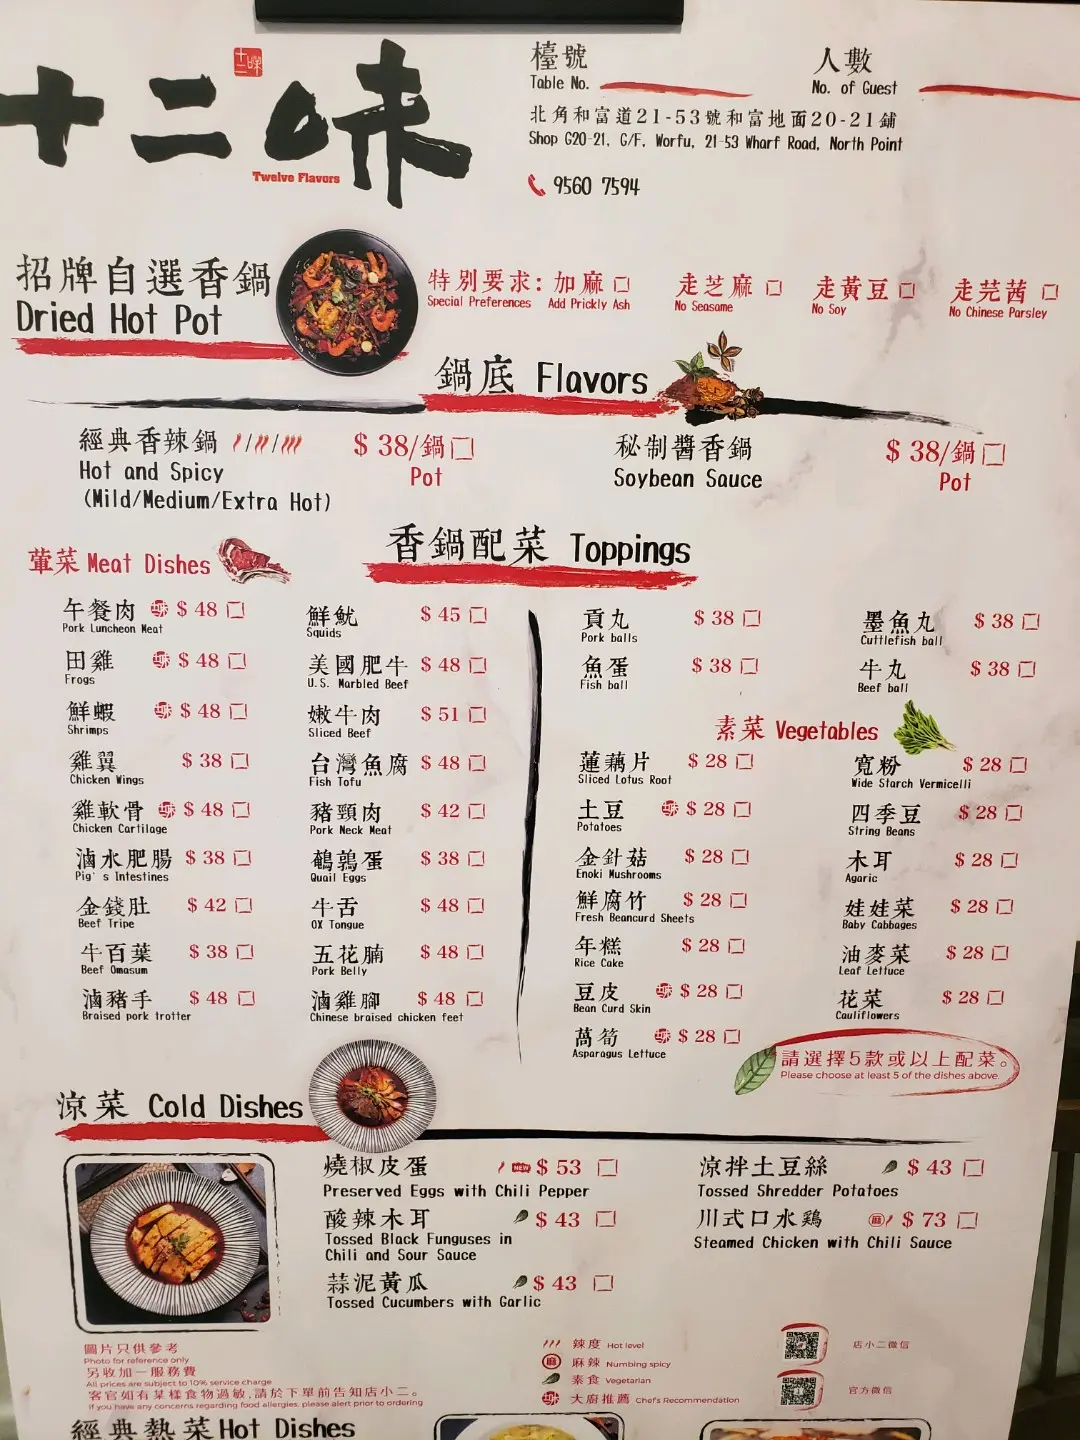 十二味
十二味
Twelve Flavors
檯號
Table No.
人數
No. of Guest
北角和富道21-53號和富地面20-21鋪
Shop G20-21, G/F, Worfu, 21-53 Wharf Road, North Point
9560 7594
招牌自選香鍋
Dried Hot Pot
特別要求: 加麻 走芝麻 走黃豆 走芫茜
Special Preferences Add Prickly Ash No Seasame No Soy No Chinese Parsley
鍋底 Flavors
經典香辣鍋 $ 38/鍋
Hot and Spicy Pot
(Mild/Medium/Extra Hot)
秘制醬香鍋 $ 38/鍋
Soybean Sauce Pot
香鍋配菜 Toppings
葷菜 Meat Dishes
午餐肉 $ 48
Pork Luncheon Meat
田雞 $ 48
Frogs
鮮蝦 $ 48
Shrimps
雞翼 $ 38
Chicken Wings
雞軟骨 $ 48
Chicken Cartilage
滷水肥腸 $ 38
Pig's Intestines
金錢肚 $ 42
Beef Tripe
牛百葉 $ 38
Beef Omasum
滷豬手 $ 48
Braised pork trotter
鮮魷 $ 45
Squids
美國肥牛 $ 48
U.S. Marbled Beef
嫩牛肉 $ 51
Sliced Beef
台灣魚腐 $ 48
Fish Tofu
豬頸肉 $ 42
Pork Neck Meat
鵪鶉蛋 $ 38
Quail Eggs
牛舌 $ 48
OX Tongue
五花腩 $ 48
Pork Belly
滷雞腳 $ 48
Chinese braised chicken feet
貢丸 $ 38
Pork balls
魚蛋 $ 38
Fish ball
墨魚丸 $ 38
Cuttlefish ball
牛丸 $ 38
Beef ball
素菜 Vegetables
蓮藕片 $ 28
Sliced Lotus Root
土豆 $ 28
Potatoes
金針菇 $ 28
Enoki Mushrooms
鮮腐竹 $ 28
Fresh Beancurd Sheets
年糕 $ 28
Rice Cake
豆皮 $ 28
Bean Curd Skin
萵筍 $ 28
Asparagus Lettuce
寬粉 $ 28
Wide Starch Vermicelli
四季豆 $ 28
String Beans
木耳 $ 28
Agaric
娃娃菜 $ 28
Baby Cabbages
油麥菜 $ 28
Leaf Lettuce
花菜 $ 28
Cauliflowers
請選擇5款或以上配菜。
Please choose at least 5 of the dishes above.
涼菜 Cold Dishes
燒椒皮蛋 NEW $ 53
Preserved Eggs with Chili Pepper
酸辣木耳 $ 43
Tossed Black Funguses in
Chili and Sour Sauce
蒜泥黃瓜 $ 43
Tossed Cucumbers with Garlic
涼拌土豆絲 $ 43
Tossed Shredder Potatoes
川式口水鶏 麻 $ 73
Steamed Chicken with Chili Sauce
圖片只供參考
Photo for reference only
另收加一服務費
All prices are subject to 10% service charge
客官如有某樣食物過敏,請於下單前告知店小二。
If you have any concerns regarding food allergies, please alert prior to ordering
辣度 Hot level
麻 麻辣 Numbing spicy
素食 Vegetarian
大廚推薦 Chef's Recommendation
店小二微信
官方微信
經典熱菜 Hot Dishes